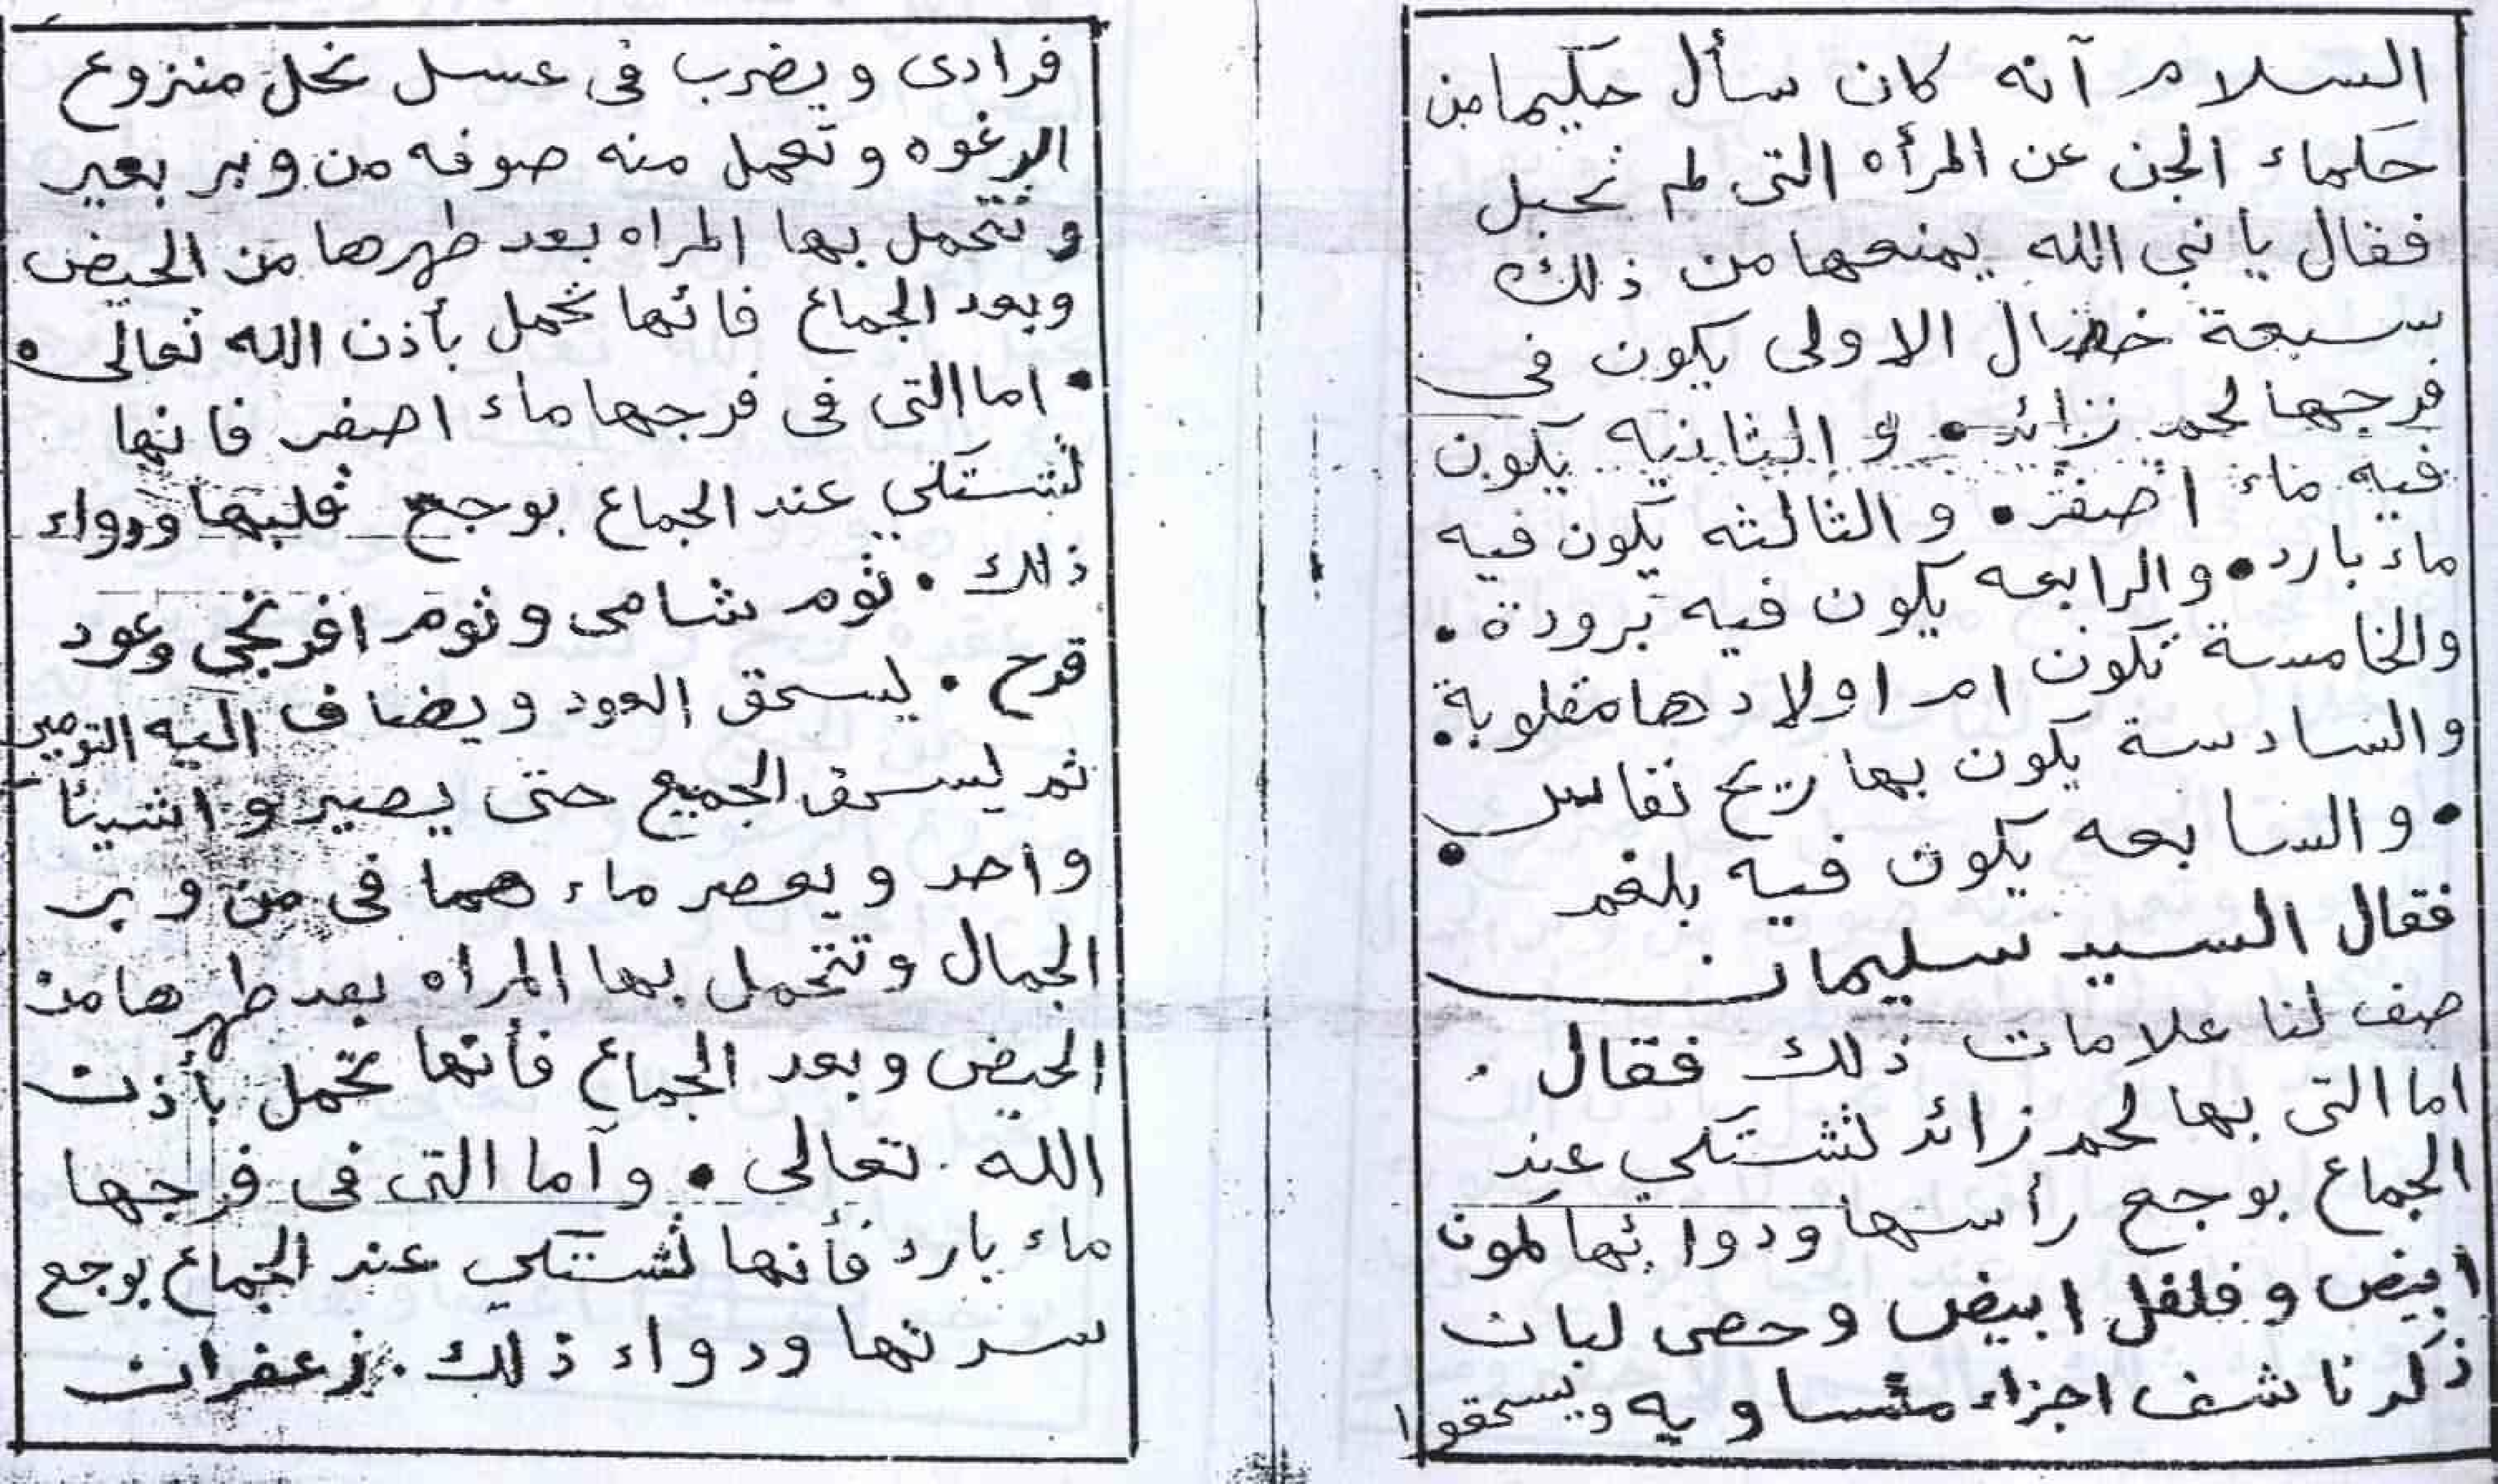 السلام آنه كان سأل حكيما من
حكماء الجن عن المرأه التى لم تحبل
فقال يا نبى الله يمنعها من ذلك
سبعة خصال الاولى يكون فى
فرجها لحم زائد • و الثانيه يكون
فيه ماء اصفر • و الثالثه يكون فيه
ماء بارد • والرابعه يكون فيه برودة •
والخامسة تكون ام اولادها مقلوبة •
والسادسة يكون بها ريح نفاس
• والسابعه يكون فيه بلغم •
فقال السيد سليمان
صف لنا علامات ذلك فقال .
اما التى بها لحم زائد تشتكي عند
الجماع بوجع رأسها ودوائها كمون
ابيض و فلفل ابيض و حصى لبان
ذكر ناشف اجزاء متساويه ويسحقوا
فرادى ويضرب فى عسل نحل منزوع
الرغوه وتعمل منه صوفه من وبر بعير
و تتحمل بها المراه بعد طهرها من الحيض
وبعد الجماع فانها تحمل بأذن الله تعالى •
• اما التى فى فرجها ماء اصفر فانها
تشتكي عند الجماع بوجع قلبها ودواء
ذلك . ثوم شامى وثوم افرنجى وعود
قرح . يسحق العود ويضاف اليه
ثم يسحق الجميع حتى يصيروا شيئا
واحد ويعصر ماءهما فى من وبر
الجمال وتتحمل بها المراه بعد طهرها من
الحيض وبعد الجماع فأنها تحمل بأذن
الله تعالى • وآما التى فى فرجها
ماء بارد فأنها تشتكي عند الجماع بوجع
سرتها ودواء ذلك . زعفران